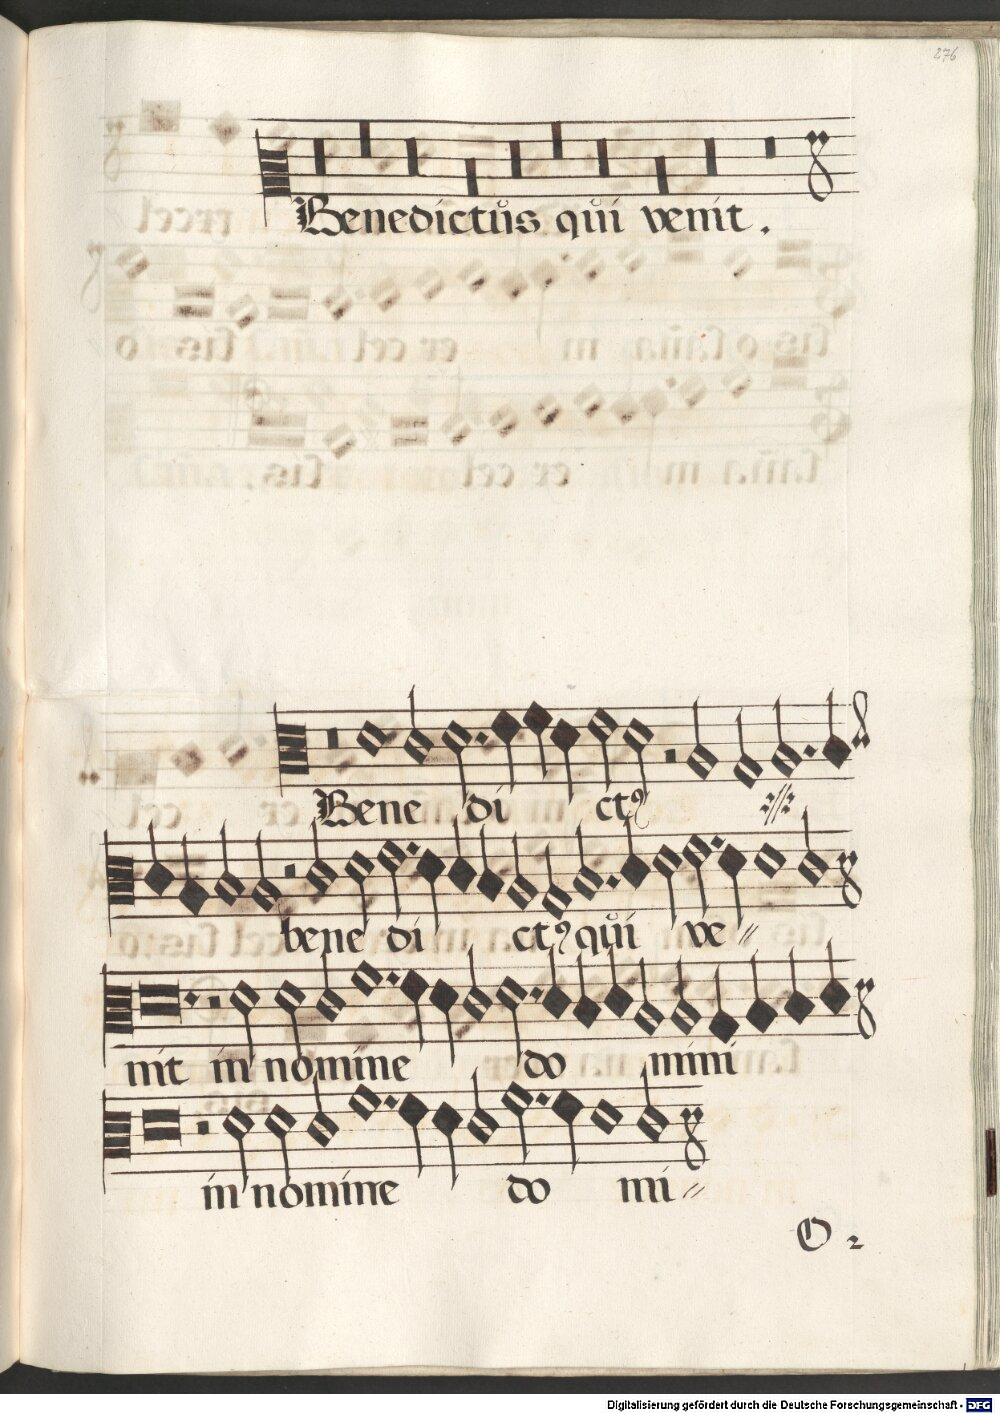 276
Benedictus qui venit.
Bene di ctꝰ
bene di ctꝰ qui ve
nit in nomine do mini
in nomine do mi
O 2
Digitalisierung gefördert durch die Deutsche Forschungsgemeinschaft - DFG